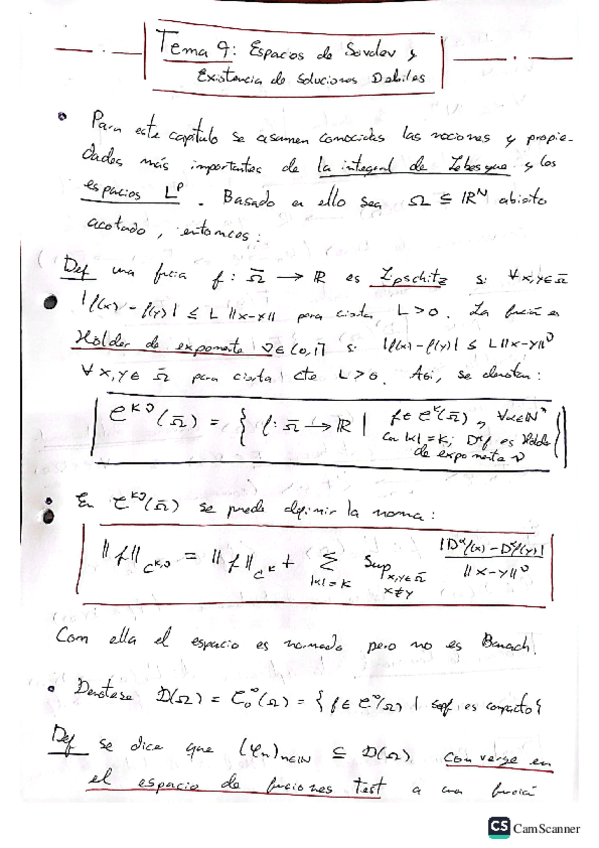 Tema 9: Espacios de Sovolev y
Existencia de Soluciones Debiles
• Para este capitulo se asumen conocidas las nociones y propie-
dades más importantes de la integral de Lebesgue y los
espacios L^p. Basado en ello sea Ω ⊆ ℝ^N abierto
acotado, entonces:
Def una función f: Ω̄ → ℝ es Lipschitz si ∀x,y∈Ω̄
|f(x) - f(y)| ≤ L ||x-y|| para cierta L>0. La función es
Hölder de exponente ν∈(0,1] si |f(x) - f(y)| ≤ L||x-y||^ν
∀x,y∈Ω̄ para cierta cte L>0. Asi, se denotan:
C^{k,ν}(Ω̄) = { f: Ω̄ → ℝ | f∈C^k(Ω̄), ∀α∈ℕ^n
con |α|=k, D^αf es Hölder
de exponente ν }
• En C^{k,ν}(Ω̄) se puede definir la norma:
||f||_{C^{k,ν}} = ||f||_{C^k} + Σ_{|α|=k} Sup_{x,y∈Ω̄, x≠y} |D^αf(x) - D^αf(y)| / ||x-y||^ν
Con ella el espacio es normado pero no es Banach
• Denotase D(Ω) = C_0^∞(Ω) = { f∈C^∞(Ω) | sopf es compacto}
Def se dice que (φn)n∈ℕ ⊆ D(Ω) converge en
el espacio de funciones test a una función
CS CamScanner